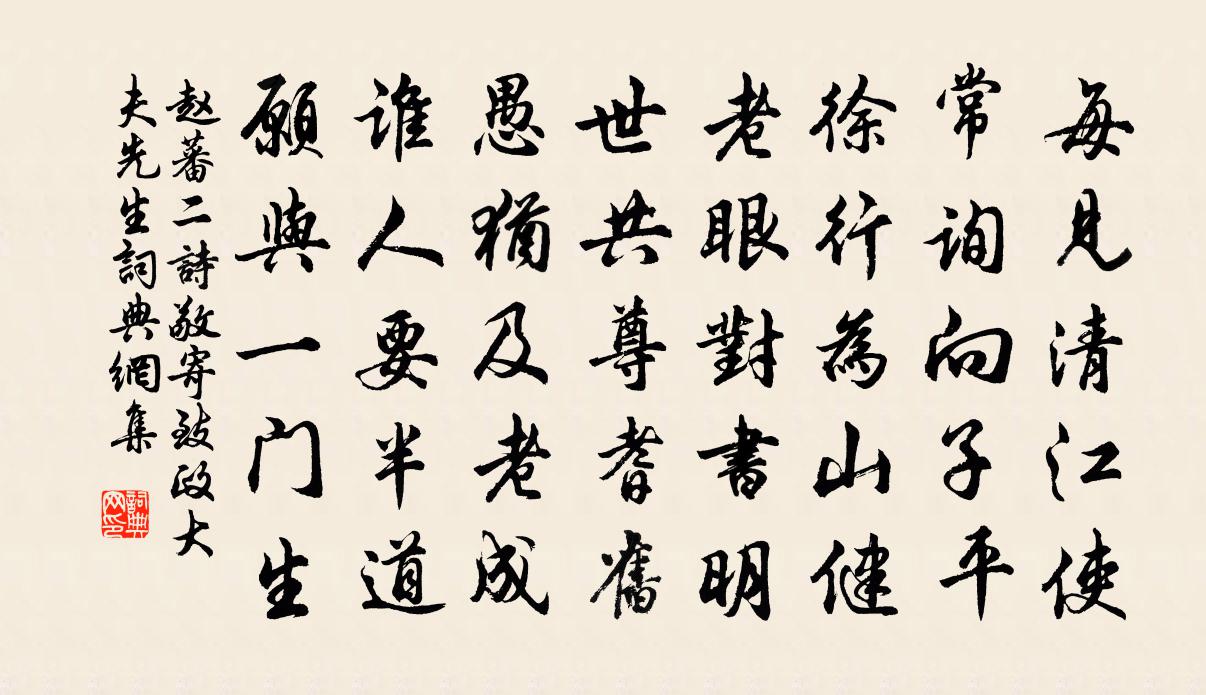 每見清江使
常詢向子平
徐行為山健
老眼對書明
世共尊耆舊
愚猶及老成
誰人要半道
願與一门生
赵蕃二詩敬寄致政大
夫先生詞典網集
詞典网印